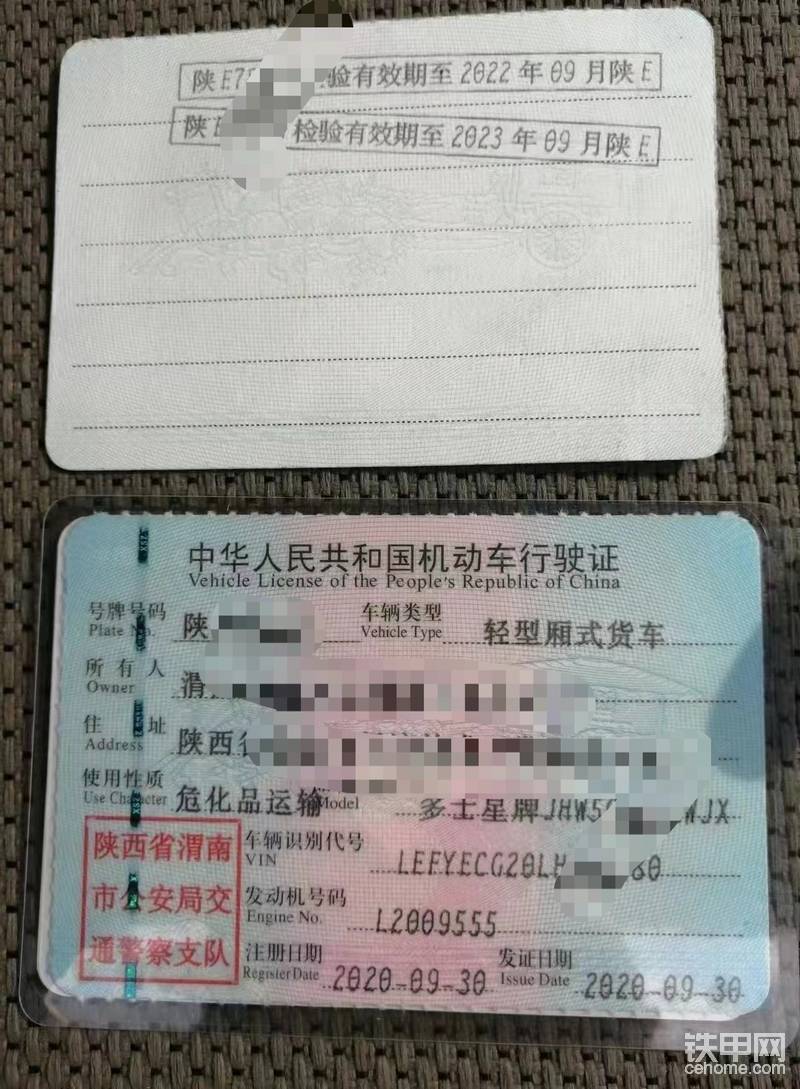 陕E7 验有效期至2022年09月陕E
陕 检验有效期至2023年09月陕E
中华人民共和国机动车行驶证
Vehicle License of the People's Republic of China
号牌号码 陕 车辆类型 轻型厢式货车
Plate No. Vehicle Type
所有人 渭
Owner
住址 陕西省
Address
使用性质 危化品运输 多士星牌JHW5 WJX
Use Character Model
陕西省渭南
市公安局交
通警察支队
车辆识别代号 LEFYECG20LH 60
VIN
发动机号码 L2009555
Engine No.
注册日期 2020-09-30 发证日期 2020-09-30
Register Date Issue Date
铁甲网
cehome.com